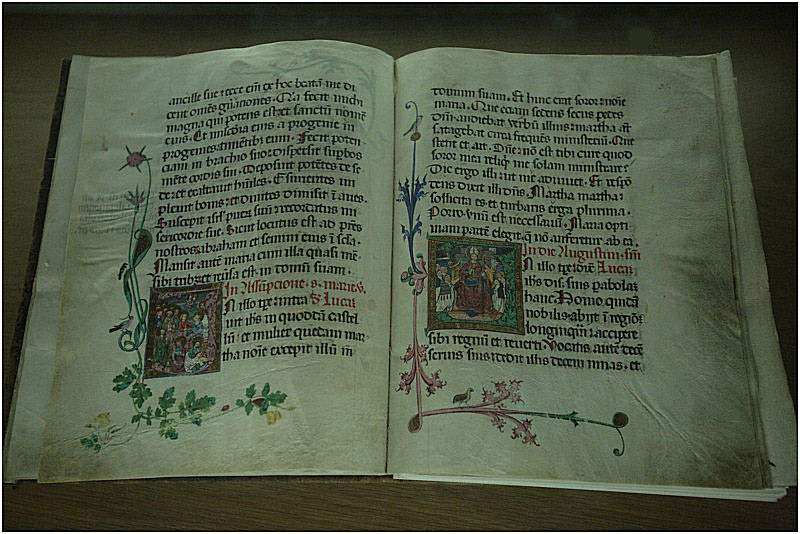 ancille sue ⁊ ecce em̄ ex hoc beatā me di
cent om̄es gn̄aciones. Q̄a fecit michi
magna qui potens est et sanctū nomē
eius. Et mīscdīa eius a progenie in
progenies timentibꝫ eum. Fecit poten
ciam in brachio suo dispersit supbos
mēte cordis sui. Deposuit potētes de se
de et exaltauit hūiles. Esurientes im
pleuit bonis et diuites dimisit īanes.
Suscepit isrl' puerū suū recordatus mi
sericordie sue. Sicut locutus est ad patres
nostros abraham et semini eius ī scla.
Mansit autē maria cum illa quasi mē
sibꝫ tribꝫ et reūsa est in domū suam.
In Assūpcione s. marie v.
IN illo tp̄e intra S. Lucā
uit ih̄s in quoddā castel
lū et mulier quedam mar
tha noīe excepit illū in
domum suam. Et huic erat soror noīe
maria. Que eciam sedens secus pedes
dn̄i audiebat verbū illius martha āt
satagebat circa frequēs ministeriū. Que
stetit et ait. Dn̄e nō est tibi cure quod
soror mea reliqt me solam ministrare
Dic ergo illi ut me adiuuet. Et respō
dens dixit illi dn̄s. Martha martha
sollicita es et turbaris erga plurima.
Porro vnū est necessariū. Maria opti
mam partē elegit q̄ nō auferetur ab ea.
In die Augustini
IN illo tp̄e dixit Lucā
ih̄s dis. suis parabolā
hanc. Homo quidā
nobilis abijt ī regionē
longinquā accipere
sibi regnū et reuerti. Vocatis autē decē
seruis suis dedit illis decem mnas. et